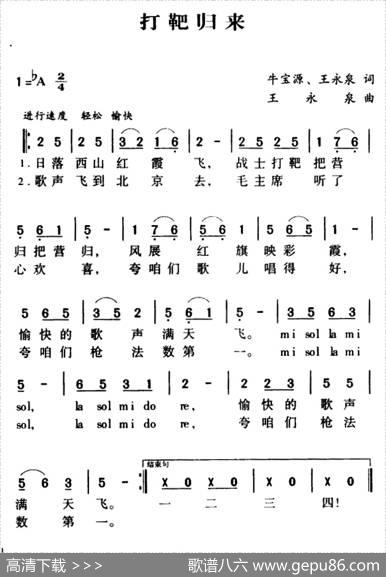 打靶归来
1=♭A 2/4
牛宝源、王永泉 词
王 永 泉 曲
进行速度 轻松 愉快
2 5 | 2 5 | 3 2 1 6 | 2 - | 2 5 | 2 5 | 1 7 6
1.日落西山红霞飞, 战士打靶把营
2.歌声飞到北京去, 毛主席听了
5 6 1 | 5 - | 1 6 | 5 | 3 5 6 1 | 5 -
归把营归, 风展红旗映彩霞,
心欢喜, 夸咱们歌儿唱得好,
5 6 5 | 3 5 2 | 5 6 1 | 2 - | 3 5 6 3
愉快的歌声满天飞。mi sol la mi
夸咱们枪法数第一。mi sol la mi
5 - | 6 5 3 1 | 2 - | 2 2 3 | 5 5
sol, la sol mi do re, 愉快的歌声
sol, la sol mi do re, 夸咱们枪法
结束句
6 2 | 1 - | X 0 | X 0 | X 0 | X 0
满天飞。 一二三四!
数第一。
高清下载 >> 歌谱八六 www.gepu86.com